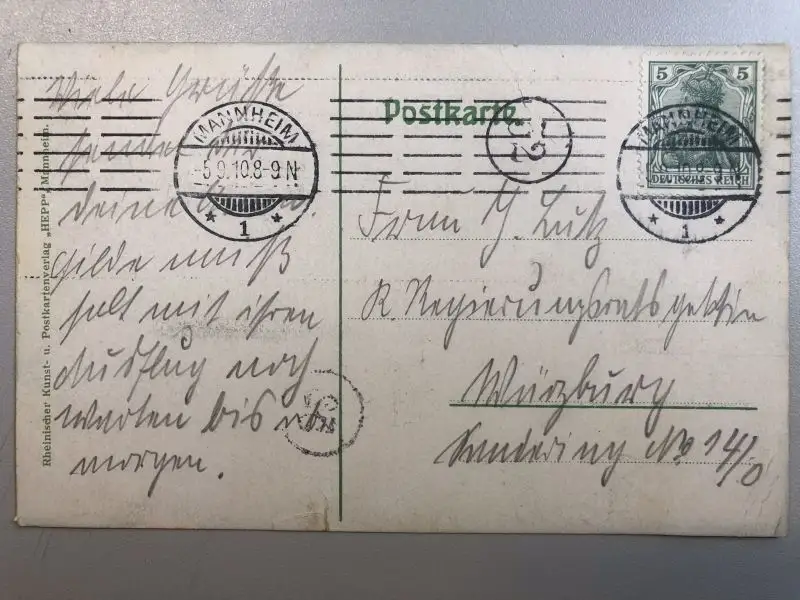 Viele Grüße
sendet Dir
deine
Hilde muß
halt mit ihren
Ausflug noch
warten bis über
morgen.
Rheinischer Kunst- u. Postkartenverlag „HEPP“, Mannheim.
MANNHEIM
5.9.10.8-9N
* 1 *
Postkarte
5 5
DEUTSCHES REICH
MANNHEIM
* 1 *
Frau H. Lutz
K. Regierungsrats gattin
Würzburg
Sanderring No 14/0